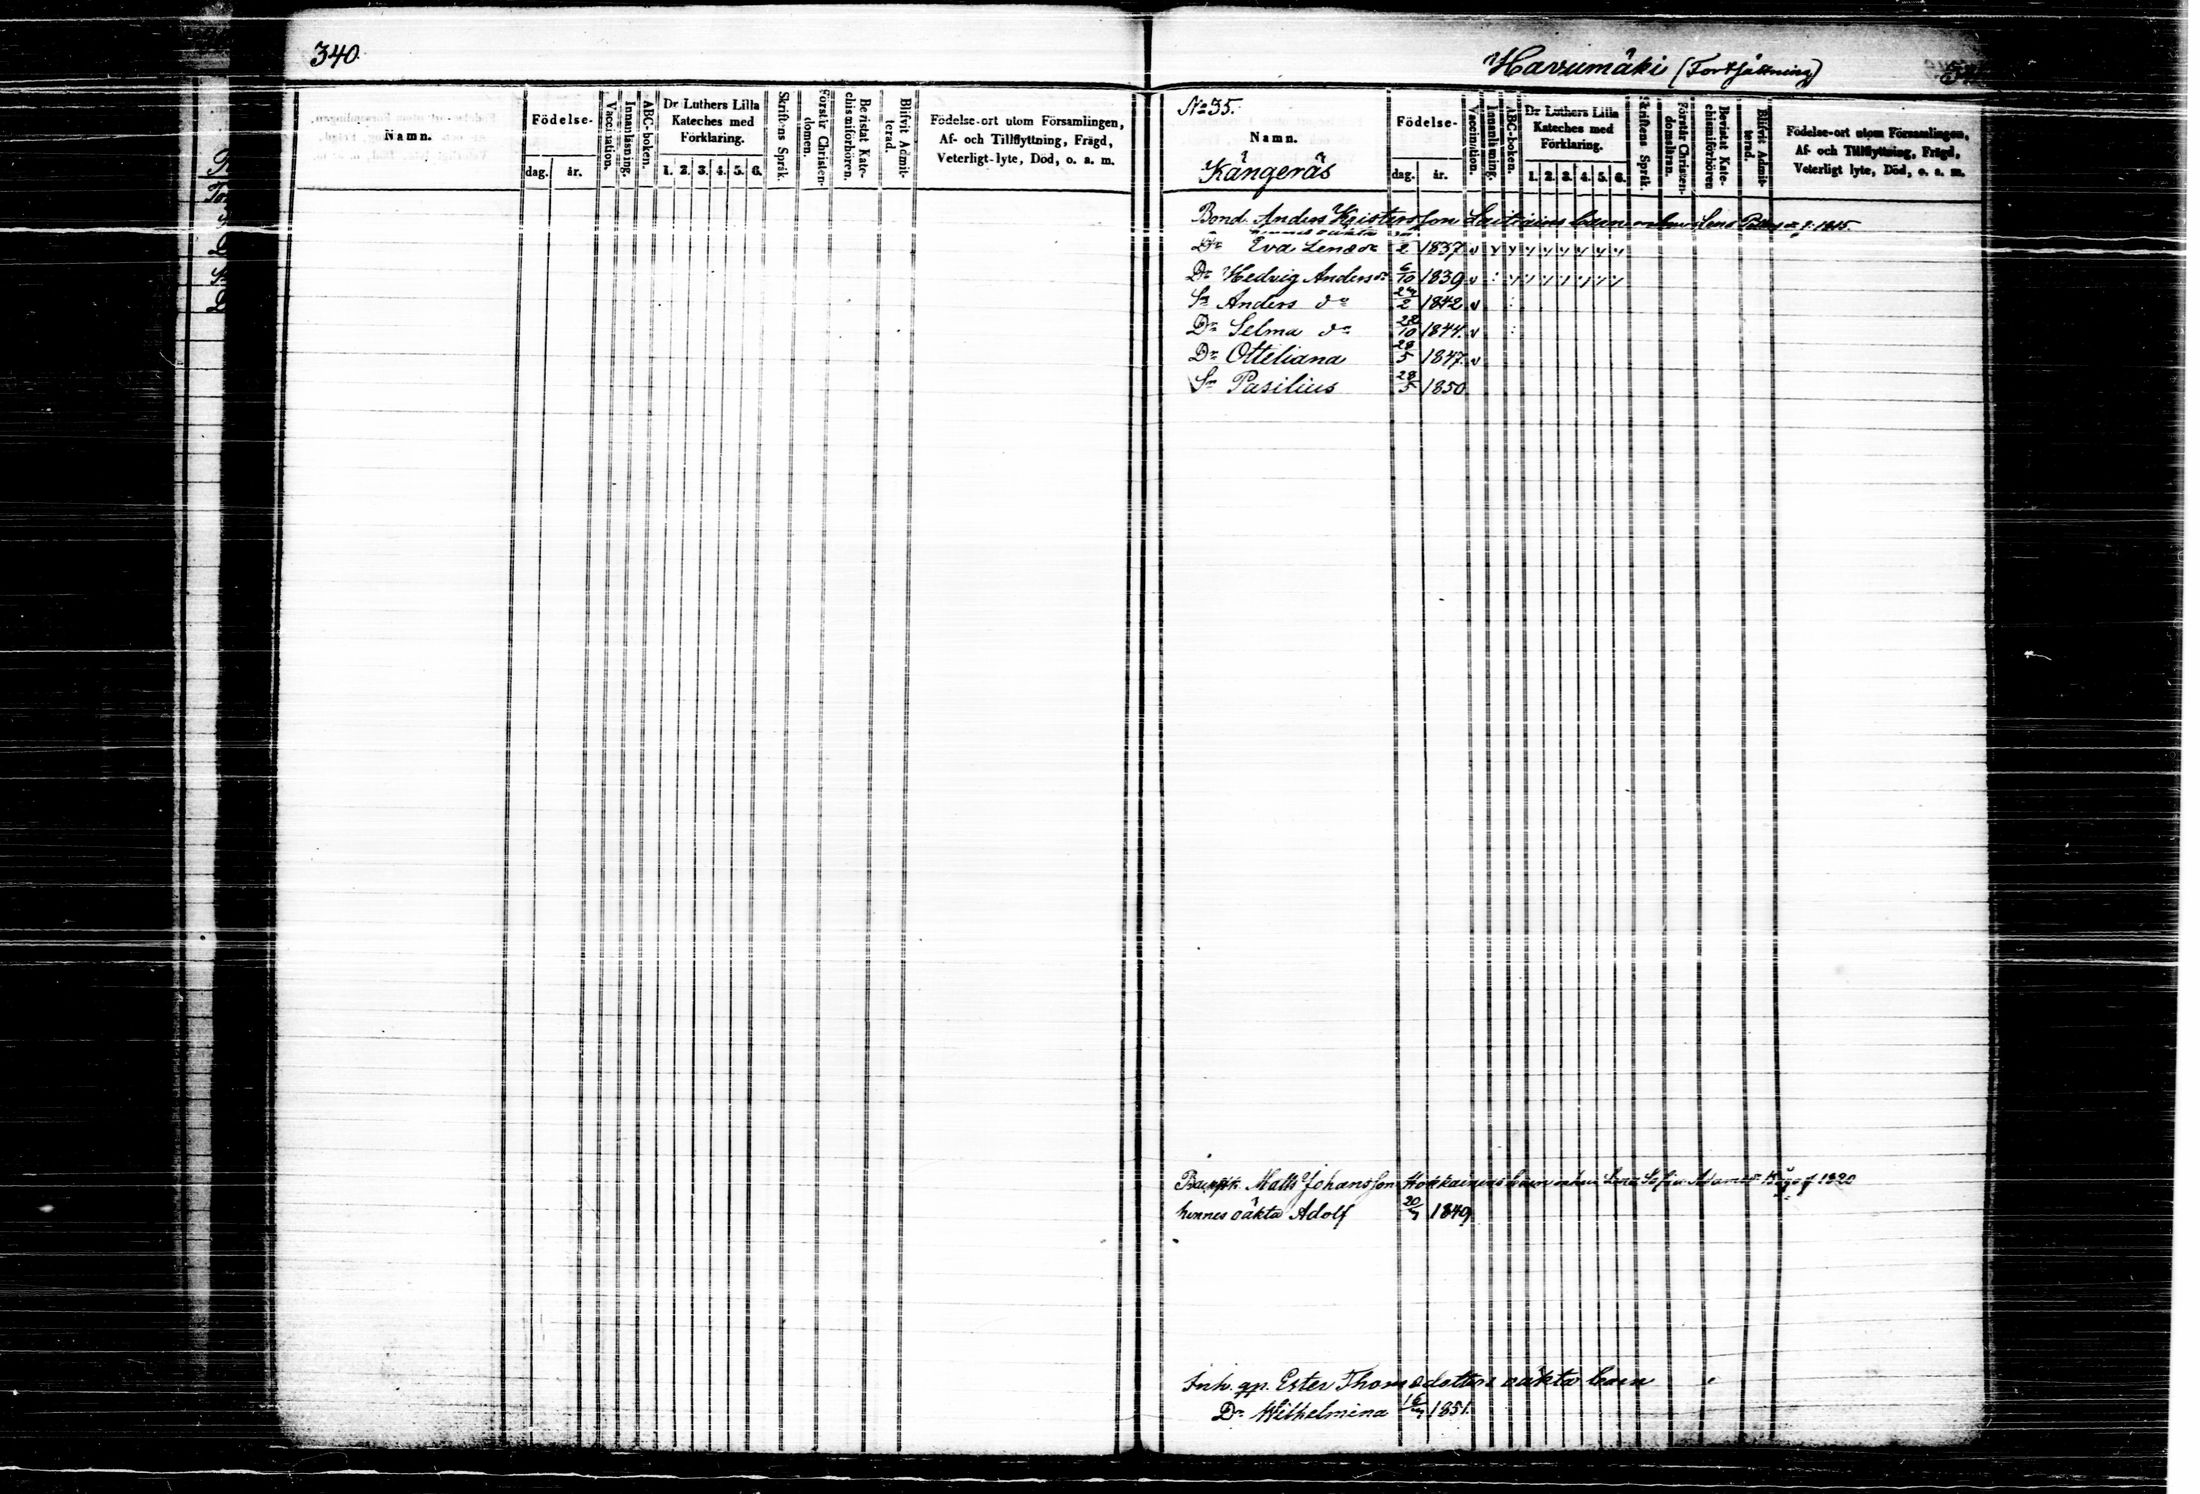 340.
Namn.
Födelse-
dag. år.
Vaccination.
Innanläsning.
ABC-boken.
Dr Luthers Lilla
Kateches med
Förklaring.
1. 2. 3. 4. 5. 6.
Skriftens Språk.
Förstår Christen-
domen.
Bevistat Kate-
chismiförhören.
Blifvit Admit-
terad.
Födelse-ort utom Församlingen,
Af- och Tillflyttning, Frägd,
Veterligt-lyte, Död, o. a. m.
Havumäki (Fortsättning)
No 35.
Namn.
Kångerås
Födelse-
dag. år.
Vaccination.
Innanläsning.
ABC-boken.
Dr Luthers Lilla
Kateches med
Förklaring.
1. 2. 3. 4. 5. 6.
Skriftens Språk.
Förstår Christen-
domsläran.
Bevistat Kate-
chismiförhören
Blifvit Admit-
terad.
Födelse-ort utom Församlingen,
Af- och Tillflyttning, Frägd,
Veterligt lyte, Död, o. a. m.
Bond. Anders Kristersson barn Lena 1815.
Dr Eva Lenæ dr 2 1837 v
Dr Hedvig Anders dr 6/10 1839 v
Sn Anders do 24/2 1842 v
Dr Selma do 28/10 1844. v
Dr Otteliana 28/5 1847. v
Sn Pasilius 28/5 1850
Matts Johansson Hokkainens barn Lena Sofia Adams dr 1820
hennes oäkta Adolf 20/7 1849
Inh. qp. Ester Thomædotters oäkta barn
Dr Wilhelmina 1851.